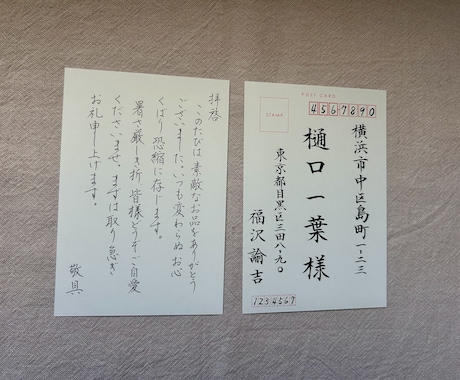 拝啓
このたびは素敵なお品をありがとう
ございました。いつも変わらぬお心
くばり恐縮に存じます。
暑さ厳しき折皆様どうぞご自愛
くださいませ。まずは取り急ぎ
お礼申し上げます。
敬具
POST CARD
STAMP
4567890
横浜市中区島町一-二三
樋口一葉様
東京都目黒区三田八-九〇
福沢諭吉
1234567